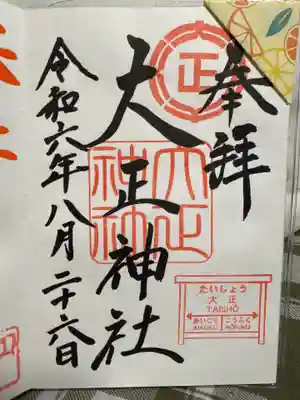 奉拝
大正
大正神社
大正神社
令和六年八月二十六日
たいしょう
大正
TAISHŌ
あいこく
こうふく
AIKOKU
KŌFUKU